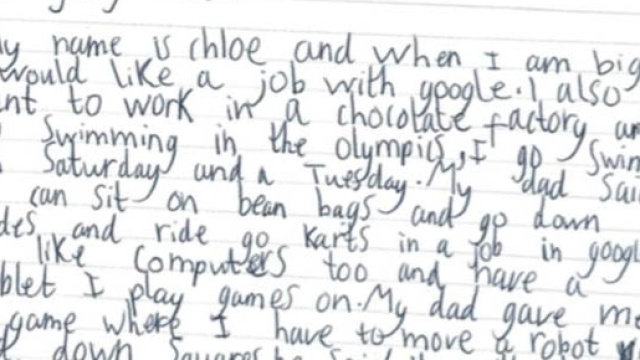 y name is chloe and when I am big
would like a job with google. I also
nt to work in a chocolate factory an
swimming in the olympics, I go Swim
Saturday and a Tuesday. My dad Sai
can sit on bean bags and go down
des and ride go karts in a job in googl
like computers too and have a
blet I play games on. My dad gave me
game where I have to move a robot
down Squares he said it